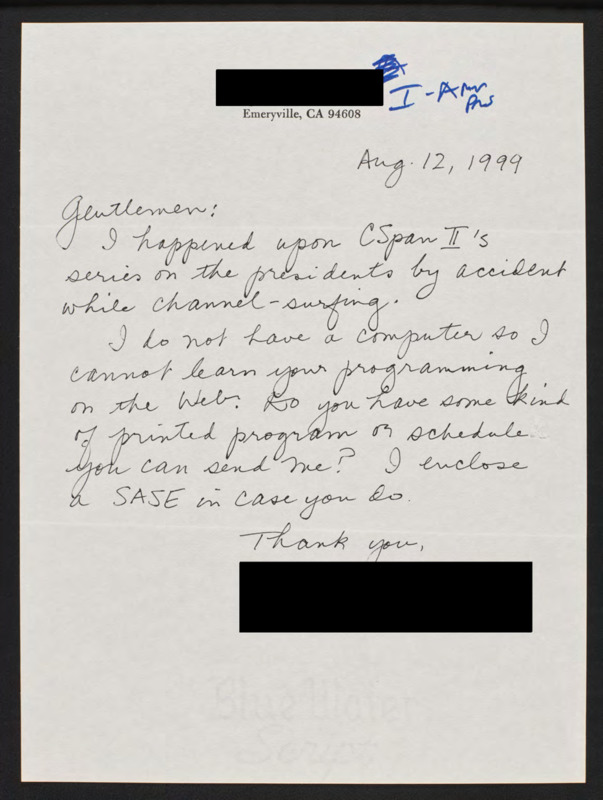 I - Amer
Pres
Emeryville, CA 94608
Aug. 12, 1999
Gentlemen:
I happened upon CSpan II's
series on the presidents by accident
while channel-surfing.
I do not have a computer so I
cannot learn your programming
on the Web. Do you have some kind
of printed program or schedule
you can send me? I enclose
a SASE in case you do.
Thank you,
Blue Water
Script